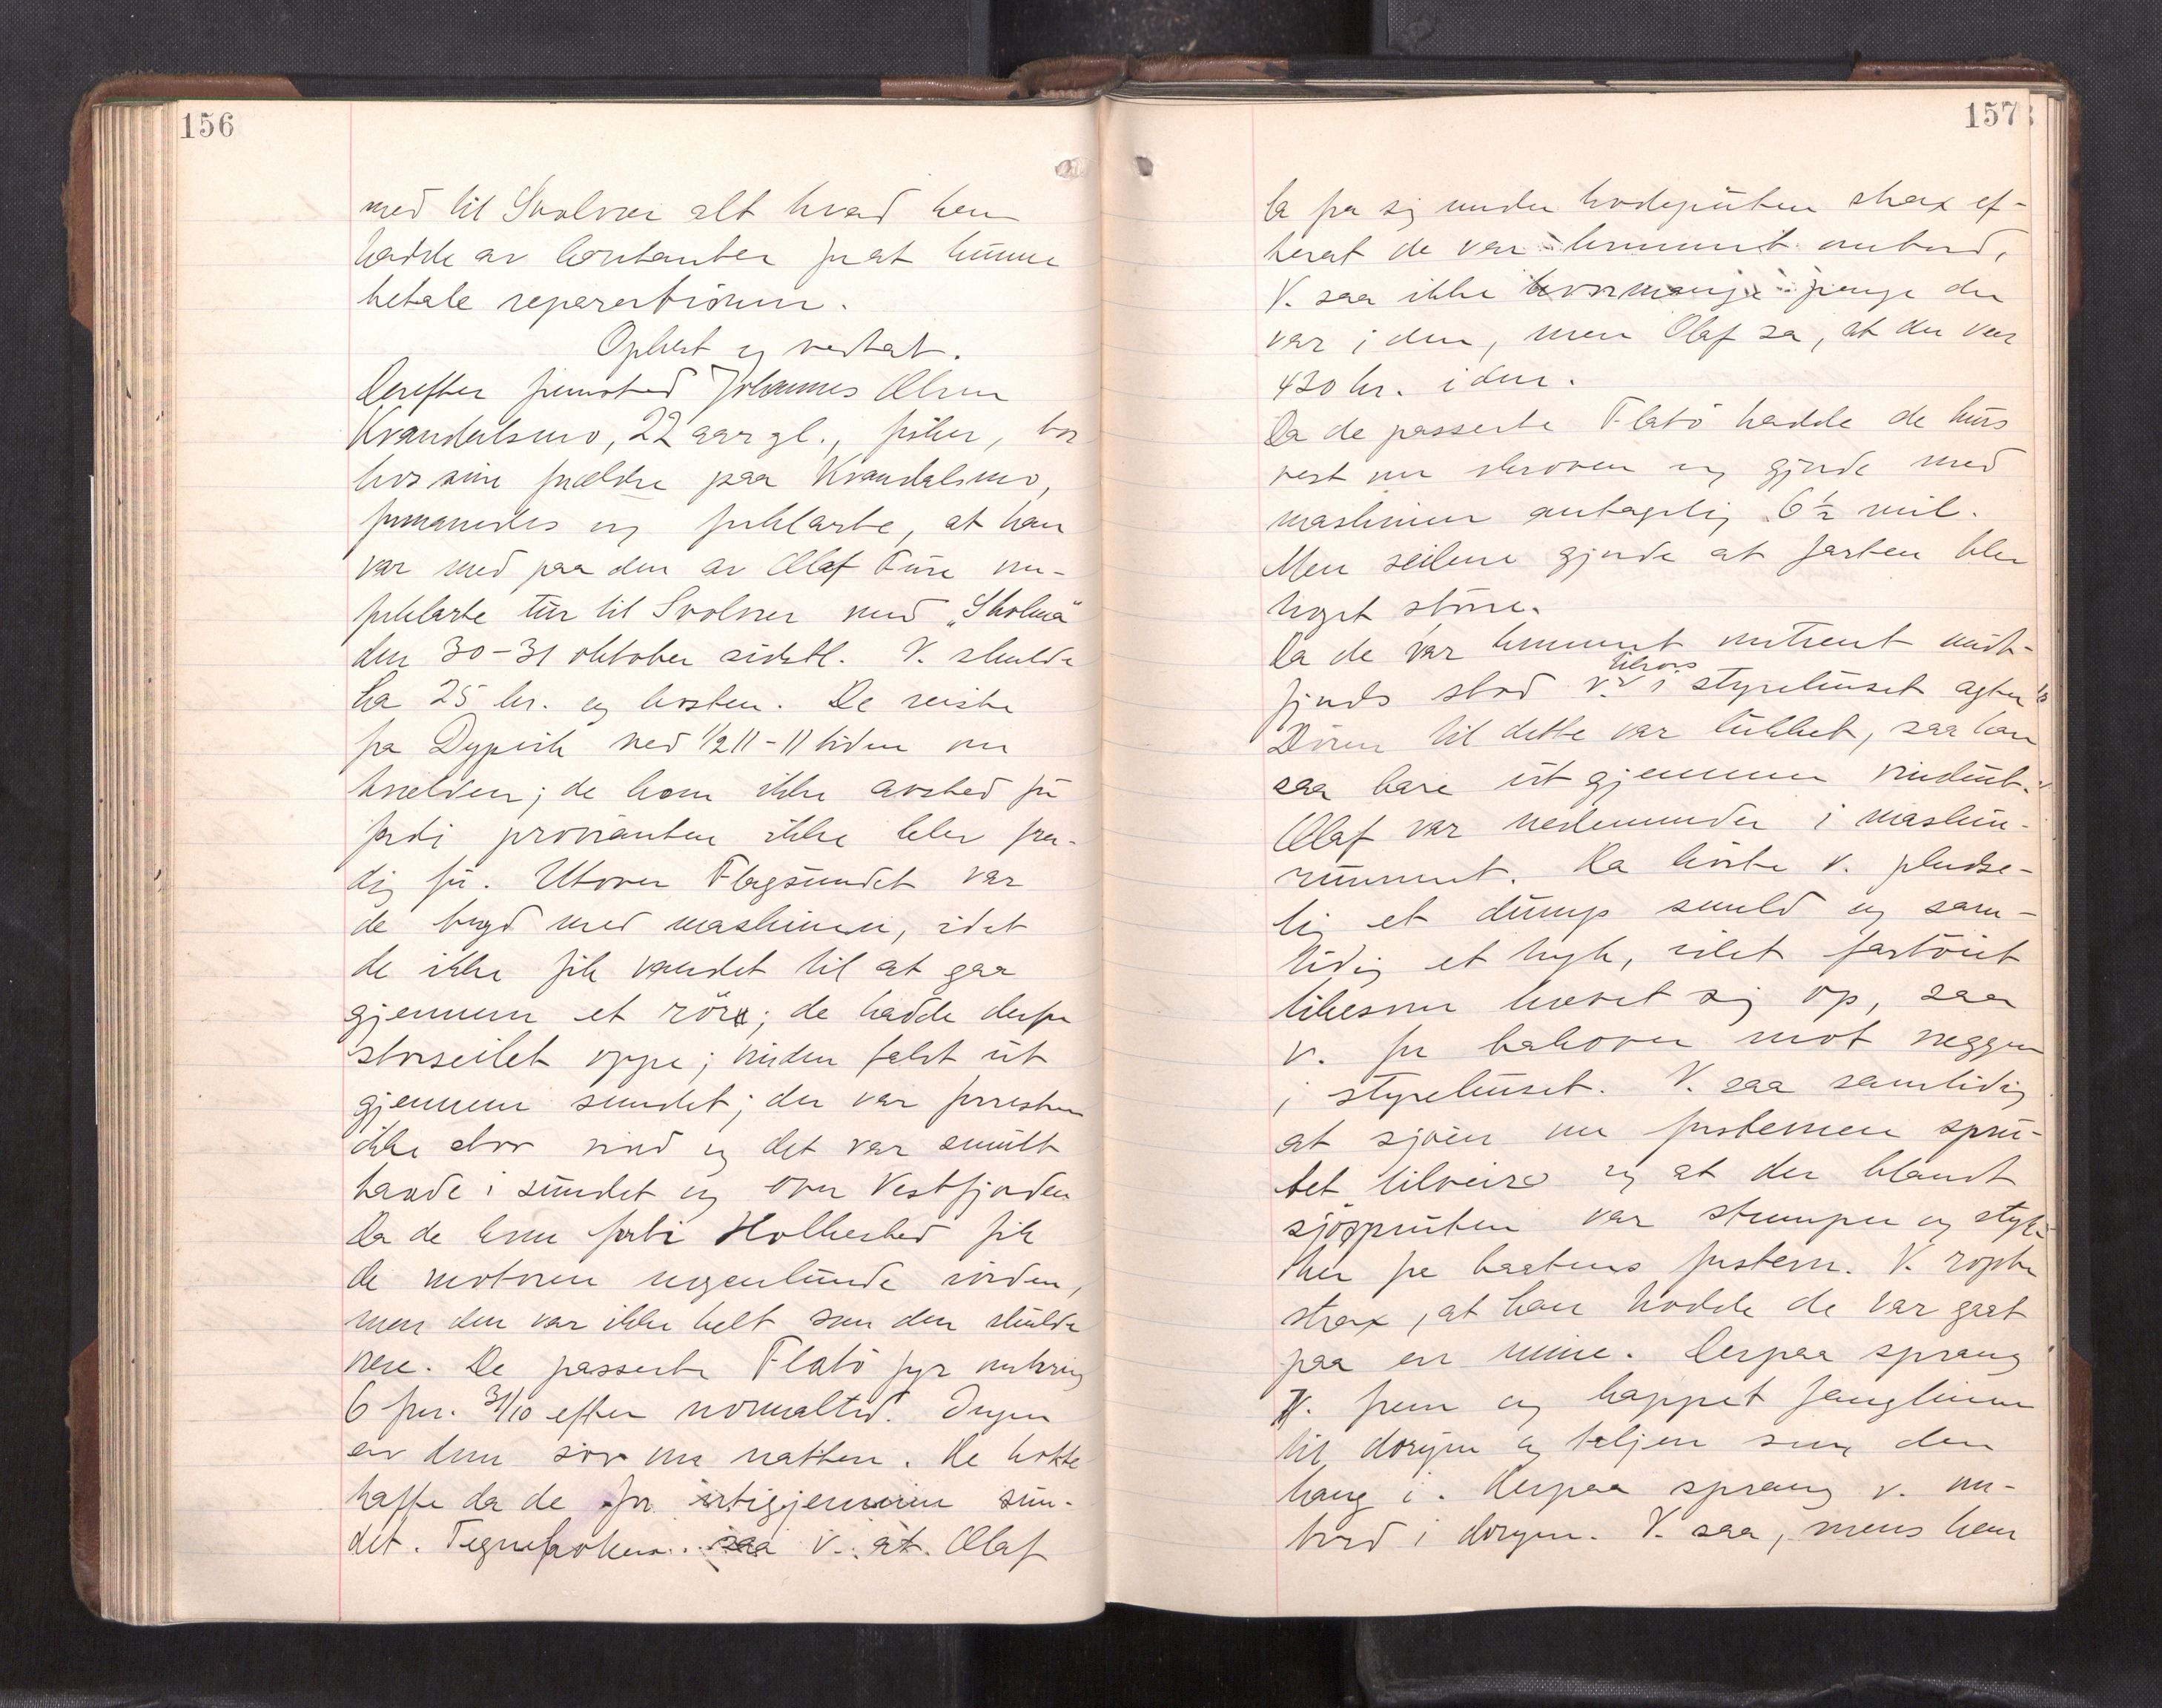 156
med til Svolvær alt hvad han
hadde av kontanter for at kunne
betale reparationen.
Oplæst og vedtat.
Derefter fremstod Johannes Olsen
Kvandalsmo, 22 aar gl., fisker, bor
hos sine forældre paa Kvandalsmo,
formanedes og forklarte, at han
var med paa den av Olaf Fure om-
forklarte tur til Svolvær med „Skolma"
den 30-31 oktober sidstl. V. skulde
ha 25 kr. og kosten. De reiste
fra Dypvik ved 1/2 11 - 11 tiden om
kvælden; de kom ikke avsted før
fordi provianten ikke blev fær-
dig før. Utover Flagsundet var
de bryd med maskinen, idet
de ikke fik vandet til at gaa
gjennem et rör; de hadde derfor
storseilet oppe; vinden faldt ut
gjennem sundet; der var forresten
ikke stor vind og det var smult
baade i sundet og over Vestfjorden
Da de kom forbi Holkestad fik
de motoren nogenlunde iorden,
men den var ikke helt som den skulde
være. De passerte Flatö fyr omkring
6 fm. 31/10 efter normaltid. Ingen
av dem sov om natten. De kokte
kaffe da de for utigjennem sun-
det. Tegneboken saa v. at Olaf
157
la fra sig under hodeputen strax ef-
terat de var kommet ombord,
V. saa ikke hvormange penge der
var i den, men Olaf sa, at der var
430 kr. i den.
Da de passerte Flatö hadde de kurs
vest om skroven og gjorde med
maskinen antagelig 6 1/2 mil.
Men seilene gjorde at farten blev
noget større.
Da de var kommet omtrent midt-
fjords stod v. tilrors i styrehuset agter
Dören til dette var lukket, saa han
saa bare ut gjennem vinduet.
Olaf var nedenunder i maskin-
rummet. Da hørte v. pludse-
lig et dump smeld og sam-
tidig et rykk, idet fartöiet
likesom hævet sig op, saa
v. for bakover mot væggen
i styrehuset. V. saa samtidig
at sjöen om forstevnen sprö-
tet tilveirs og at der blandt
sjösprøiten var stumper og styk-
ker fra baatens forstevn. V. ropte
strax, at han trodde de var gaat
paa en mine. Derpaa sprang
V. frem og kappet fanglinen
til doryen og taljen som den
hang i. Derpaa sprang v. om-
bord i doryen. V. saa, mens han